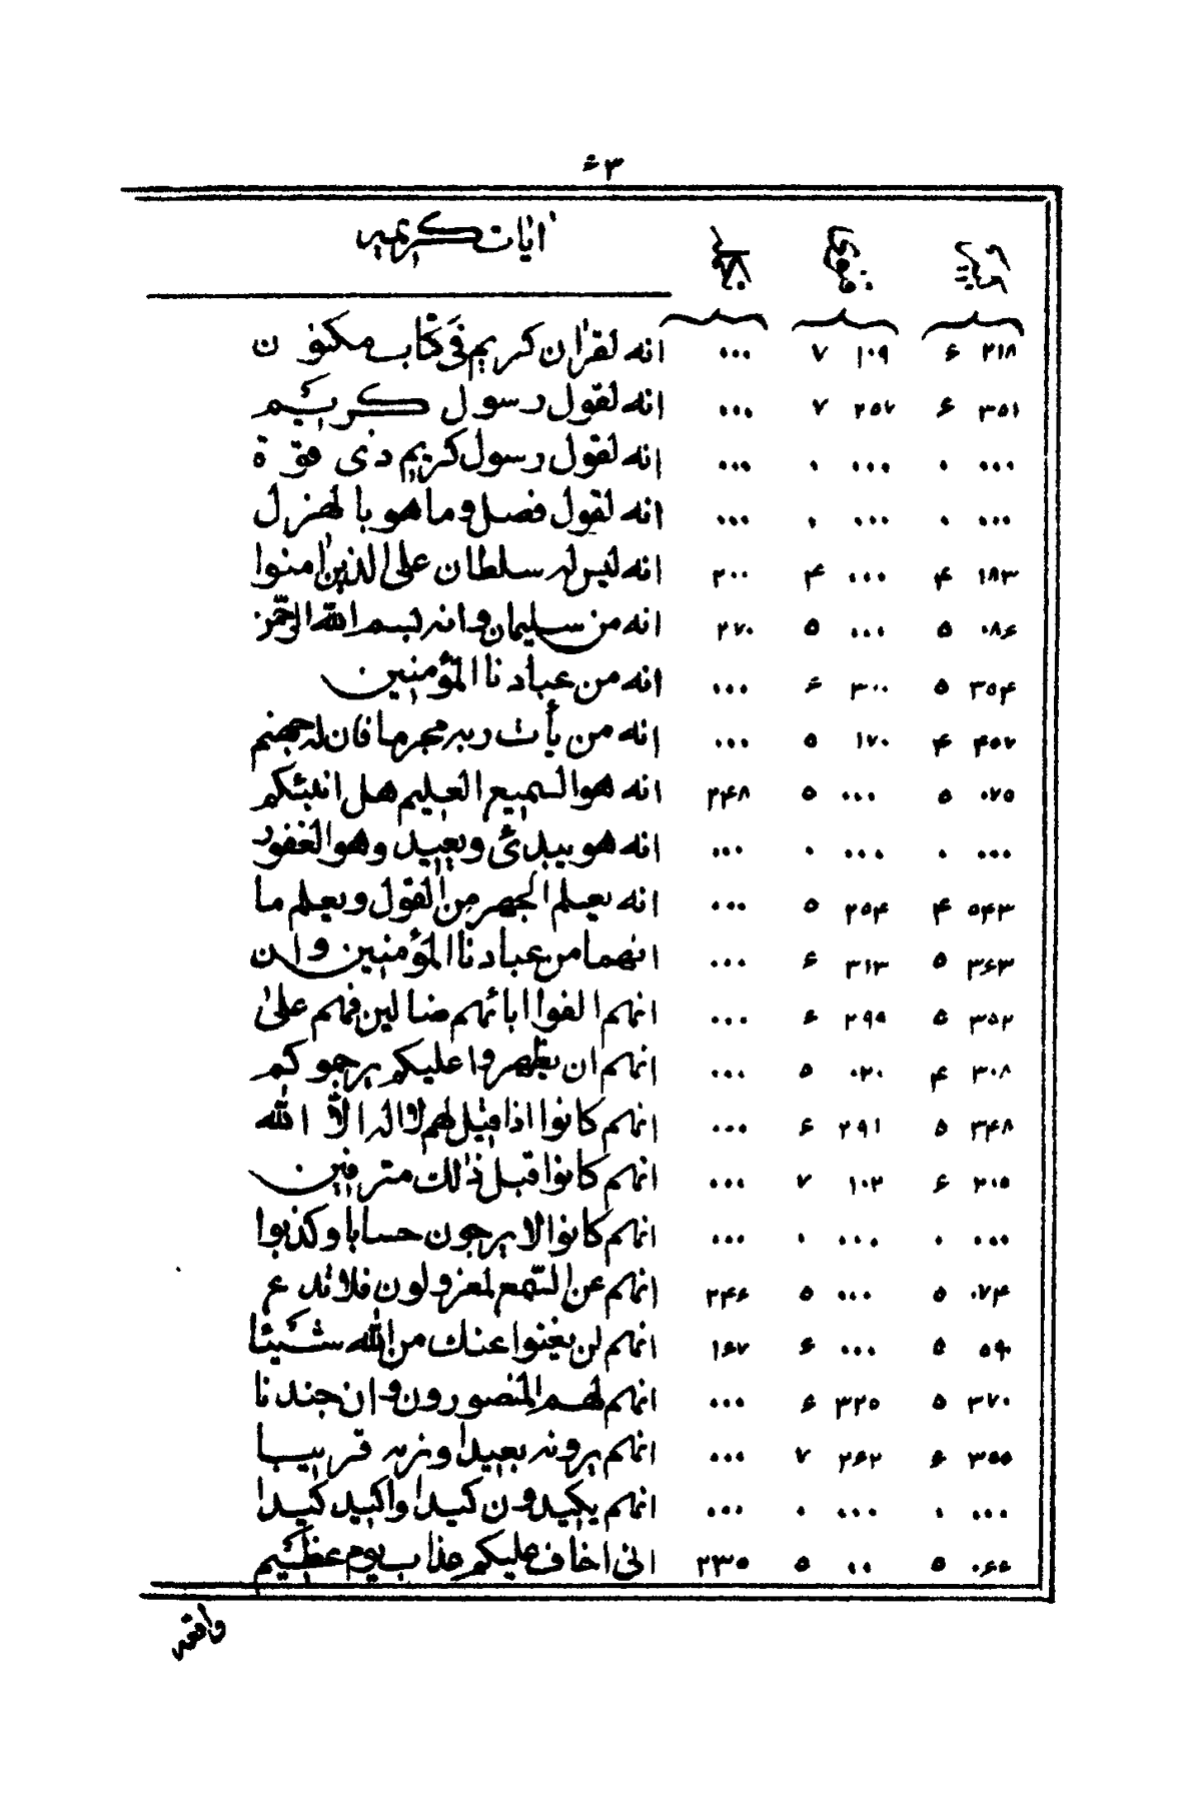 آیات کریمه
۲۱۸ ۶ ۱۰۹ ۷ ۰۰۰ انه لقران کریم فی کتاب مکنون
۳۵۱ ۶ ۲۵۷ ۷ ۰۰۰ انه لقول رسول کریم
۰۰۰ ۰ ۰۰۰ ۰ ۰۰۰ انه لقول رسول کریم ذی قوة
۰۰۰ ۰ ۰۰۰ ۰ ۰۰۰ انه لقول فصل وما هو بالهزل
۱۸۳ ۴ ۰۰۰ ۴ ۲۰۰ انه لیس له سلطان علی الذین امنوا
۰۸۶ ۵ ۰۰۰ ۵ ۲۷۰ انه من سلیمان وانه بسم الله الرحمن
۳۵۴ ۵ ۳۰۰ ۶ ۰۰۰ انه من عبادنا المؤمنین
۴۵۷ ۴ ۱۷۰ ۵ ۰۰۰ انه من یأت ربه مجرما فان له جهنم
۰۷۵ ۵ ۰۰۰ ۵ ۲۴۸ انه هو السمیع العلیم هل انبئکم
۰۰۰ ۰ ۰۰۰ ۰ ۰۰۰ انه هو یبدئ ویعید وهو الغفور
۵۴۳ ۴ ۲۵۴ ۵ ۰۰۰ انه یعلم الجهر من القول ویعلم ما
۳۶۳ ۵ ۳۱۳ ۶ ۰۰۰ انهما من عبادنا المؤمنین وان
۳۵۲ ۵ ۲۹۵ ۶ ۰۰۰ انهم الفوا ابائهم ضالین فهم علیٰ
۳۰۸ ۴ ۰۲۰ ۵ ۰۰۰ انهم ان یظهروا علیکم یرجموکم
۳۴۸ ۵ ۲۹۱ ۶ ۰۰۰ انهم کانوا اذا قیل لهم لا اله الا الله
۲۰۵ ۶ ۱۰۲ ۷ ۰۰۰ انهم کانوا قبل ذٰلك مترفین
۰۰۰ ۰ ۰۰۰ ۰ ۰۰۰ انهم کانوا لا یرجون حسابا وکذبوا
۰۷۴ ۵ ۰۰۰ ۵ ۲۴۶ انهم عن السمع لمعزولون فلا تدع
۵ ۰۰۰ ۶ ۱۶۷ انهم لن یغنوا عنك من الله شیئا
۳۷۰ ۵ ۳۲۵ ۶ ۰۰۰ انهم لهم المنصورون وان جندنا
۳۵۵ ۶ ۲۶۲ ۷ ۰۰۰ انهم یرونه بعیدا ونریه قریبا
۰۰۰ ۰ ۰۰۰ ۰ ۰۰۰ انهم یکیدون کیدا واکید کیدا
۰۶۶ ۵ ۰۰ ۵ ۲۳۵ انی اخاف علیکم عذاب یوم عظیم
واقعه